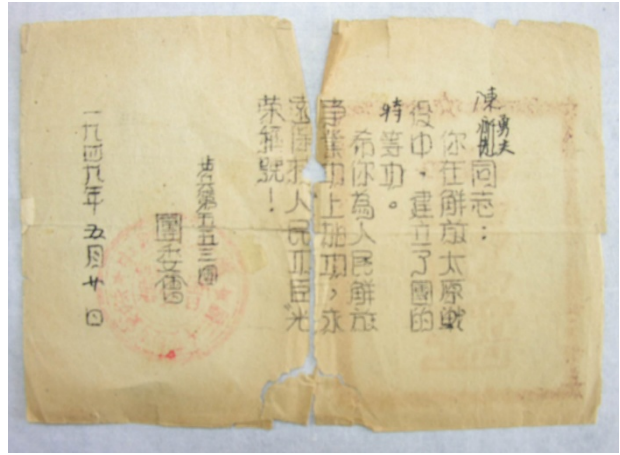 陳勇夫同志：
你在解放太原戰
役中，建立了團的
特等功。
希你為人民解放
事業功上加功，永
遠保持人民功臣光
榮稱號！
步兵第五五三團
團委會
一九四九年五月廿日